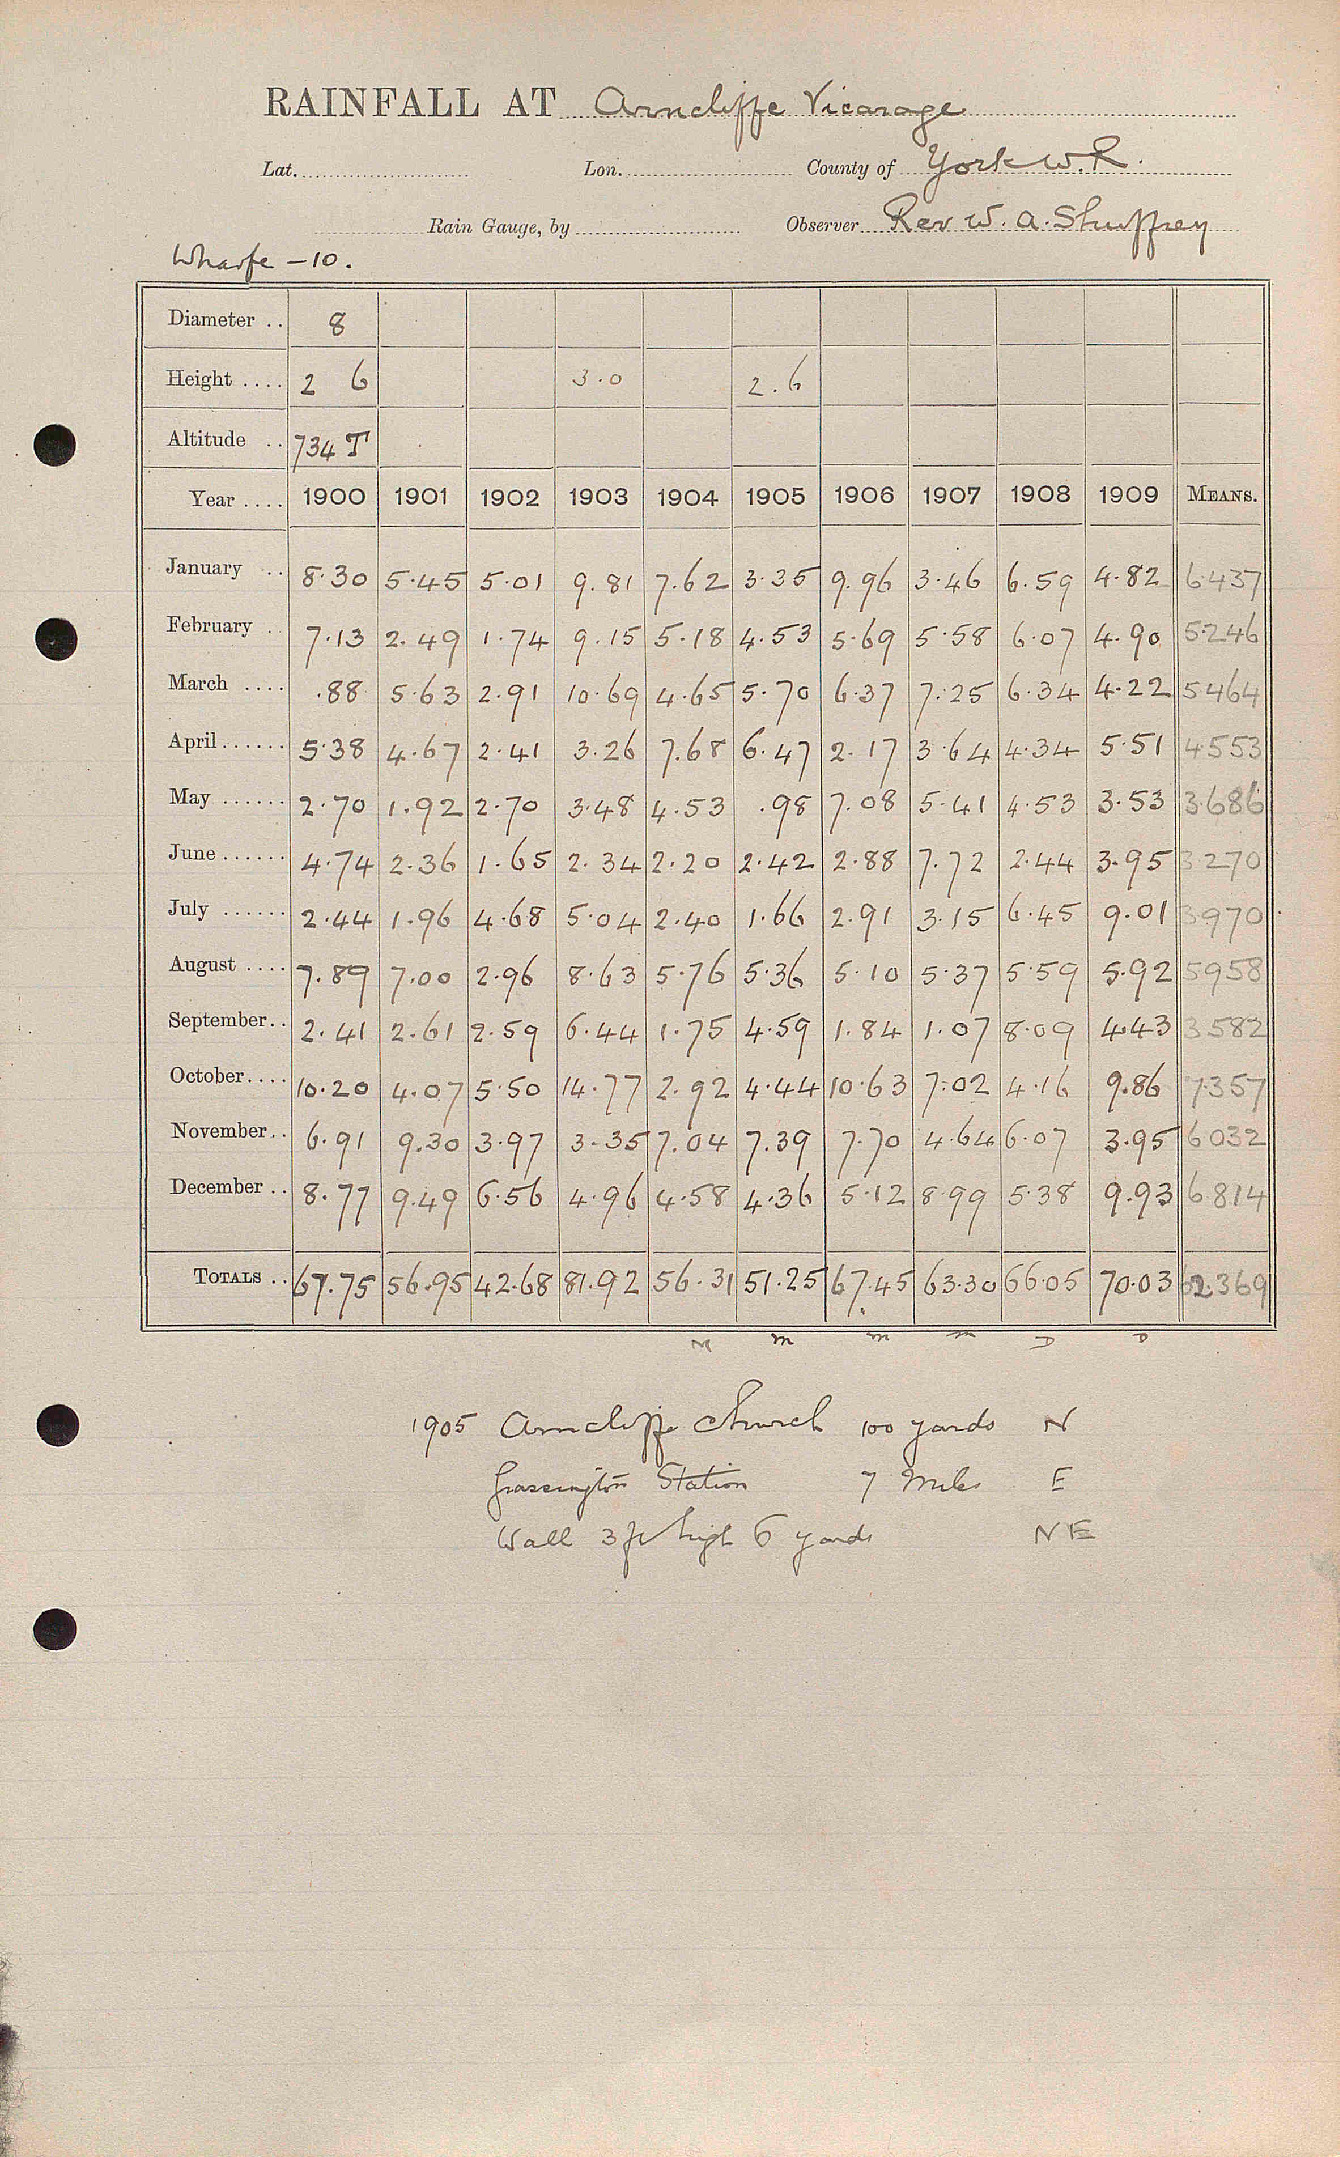 RAINFALL AT Arncliffe Vicarage
Lat. Lon. County of York W.R.
Rain Gauge, by Observer Rev W. A. Shuffrey
Wharfe - 10.
Diameter .. 8
Height .... 2 6 3.0 2.6
Altitude .. 734 T
Year .... 1900 1901 1902 1903 1904 1905 1906 1907 1908 1909 MEANS.
January .. 8.30 5.45 5.01 9.81 7.62 3.35 9.96 3.46 6.59 4.82 6.437
February .. 7.13 2.49 1.74 9.15 5.18 4.53 5.69 5.58 6.07 4.90 5.246
March .... .88 5.63 2.91 10.69 4.65 5.70 6.37 7.25 6.34 4.22 5464
April ...... 5.38 4.67 2.41 3.26 7.68 6.47 2.17 3.64 4.34 5.51 4553
May ...... 2.70 1.92 2.70 3.48 4.53 .98 7.08 5.41 4.53 3.53 3.686
June ...... 4.74 2.36 1.65 2.34 2.20 2.42 2.88 7.72 2.44 3.95 3.270
July ...... 2.44 1.96 4.68 5.04 2.40 1.66 2.91 3.15 6.45 9.01 3970
August .... 7.89 7.00 2.96 8.63 5.76 5.36 5.10 5.37 5.59 5.92 5958
September .. 2.41 2.61 2.59 6.44 1.75 4.59 1.84 1.07 8.09 4.43 3582
October .... 10.20 4.07 5.50 14.77 2.92 4.44 10.63 7.02 4.16 9.86 7.357
November .. 6.91 9.30 3.97 3.35 7.04 7.39 7.70 4.64 6.07 3.95 6032
December .. 8.77 9.49 6.56 4.96 4.58 4.36 5.12 8.99 5.38 9.93 6.814
TOTALS .. 67.75 56.95 42.68 81.92 56.31 51.25 67.45 63.30 66.05 70.03 62.369
M m m m D D
1905 Arncliffe Church 100 yards N
Grassington Station 7 Miles E
Wall 3 ft high 6 yards NE